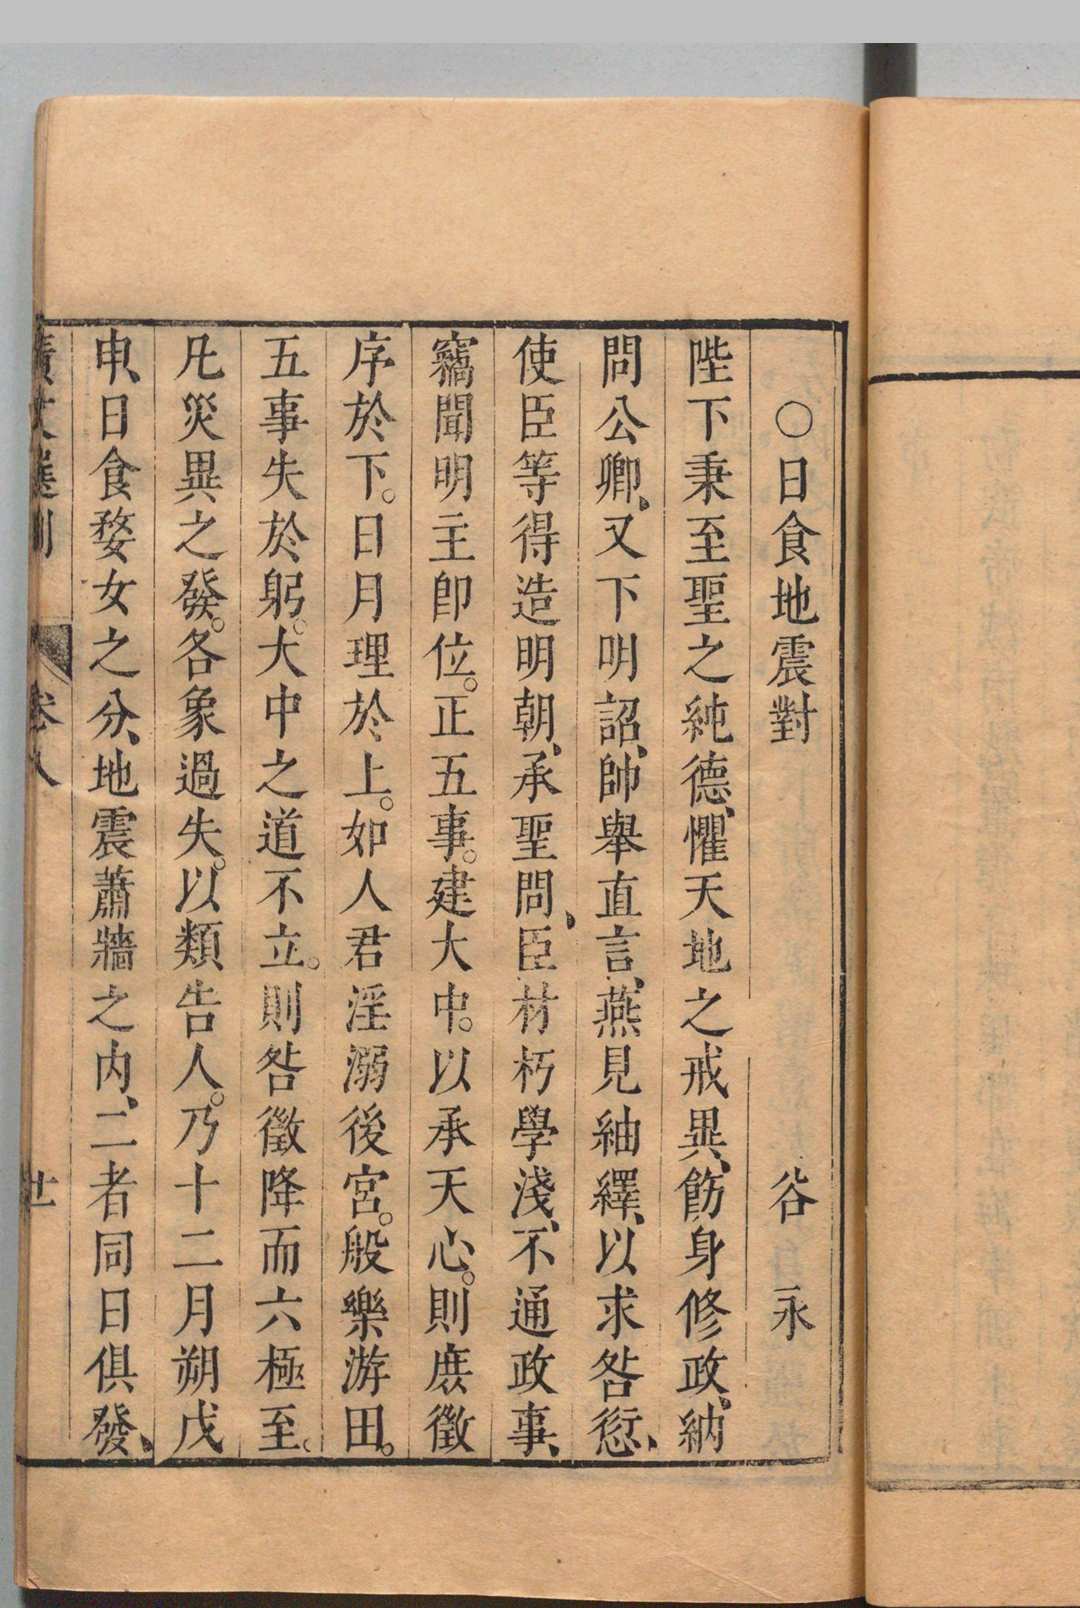 ○日食地震對　谷永
陛下秉至聖之純德、懼天地之戒異、飭身修政、納
問公卿、又下明詔、帥舉直言、燕見紬繹、以求咎愆、
使臣等得造明朝、承聖問、臣材朽學淺、不通政事、
竊聞明主即位。正五事。建大中。以承天心。則庶徵
序於下。日月理於上。如人君淫溺後宮。般樂游田。
五事失於躬。大中之道不立。則咎徵降而六極至。
凡災異之發。各象過失。以類告人。乃十二月朔戊
申、日食婺女之分、地震蕭牆之內、二者同日俱發、
廣文選刪　卷八　廿